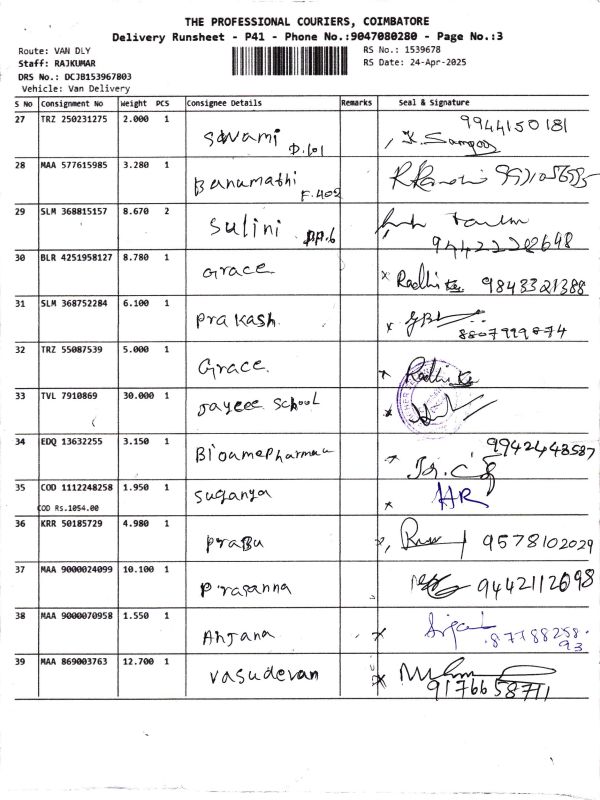 THE PROFESSIONAL COURIERS, COIMBATORE
Delivery Runsheet - P41 - Phone No.:9047080280 - Page No.:3
Route: VAN DLY
RS No.: 1539678
Staff: RAJKUMAR
RS Date: 24-Apr-2025
DRS No.: DCJB153967803
Vehicle: Van Delivery
S No Consignment No Weight PCS Consignee Details Remarks Seal & Signature
27 TRZ 250231275 2.000 1 Swami D.101 9944150181
28 MAA 577615985 3.280 1 Banumathi F.402
29 SLM 368815157 8.670 2 Sulini
30 BLR 4251958127 8.780 1 Grace x Radhi 9843321388
31 SLM 368752284 6.100 1 Prakash x
32 TRZ 55087539 5.000 1 Grace x Radhi
33 TVL 7910869 30.000 1 Jayeee School x
34 EDQ 13632255 3.150 1 9942448587
35 COD 1112248258 1.950 1 Suganya x HR
COD Rs.1054.00
36 KRR 50185729 4.980 1 Prabu 9578102029
37 MAA 9000024099 10.100 1 Prasanna 9442112698
38 MAA 9000070958 1.550 1 Anjana x 87788258
93
39 MAA 869003763 12.700 1 Vasudevan x
9176658711